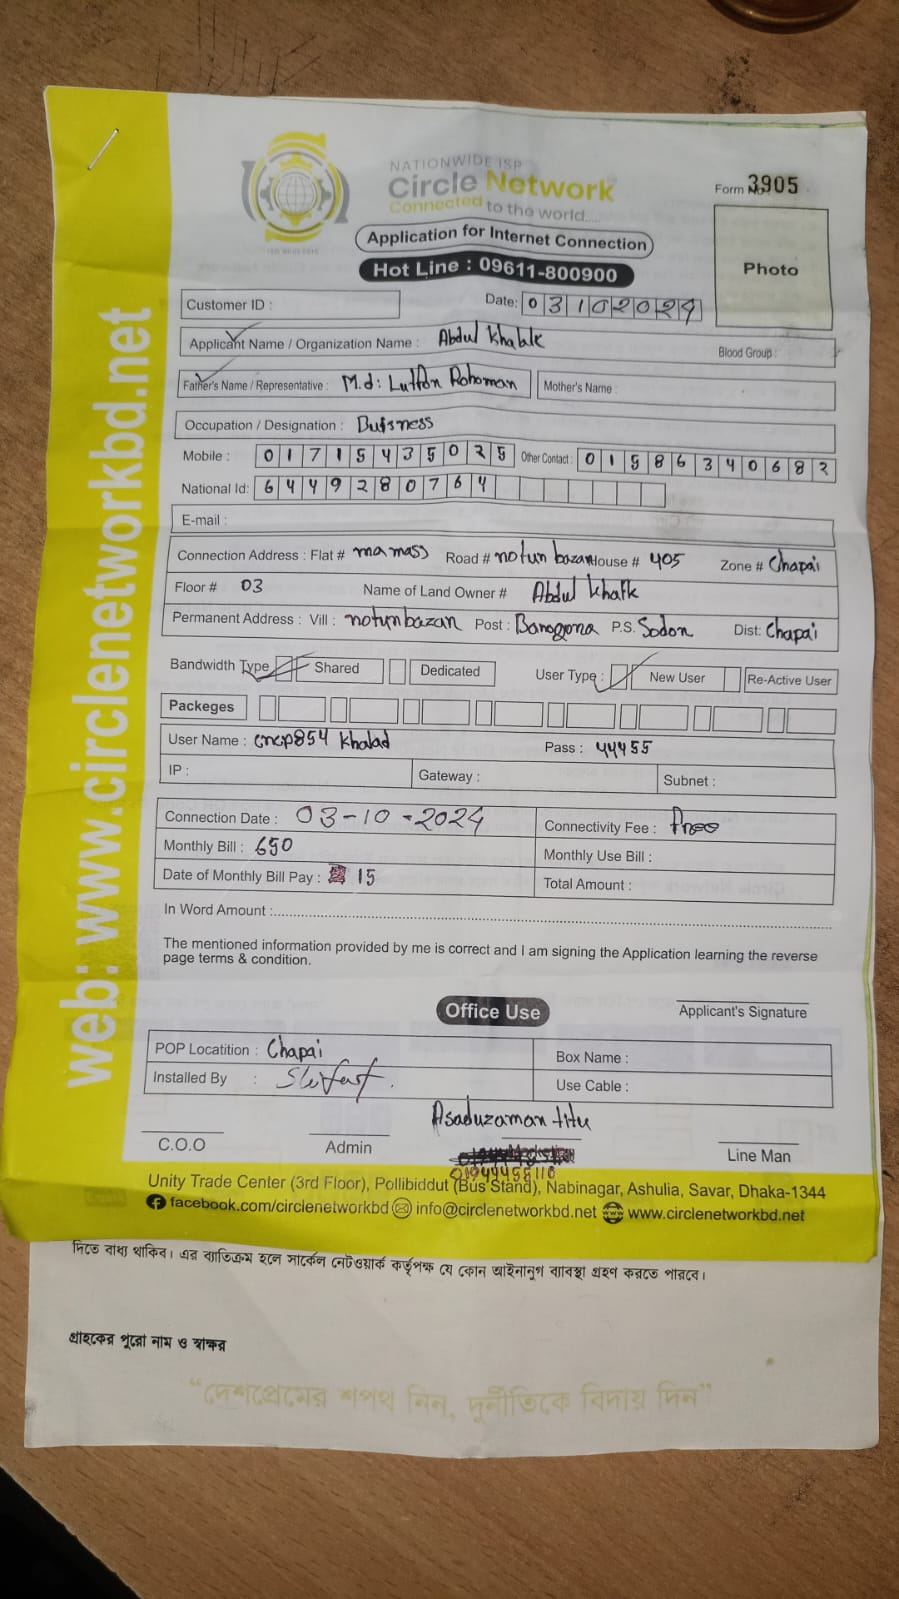 NATIONWIDE ISP
Circle Network
Connected to the world.....
Form No 3905
Application for Internet Connection
Hot Line : 09611-800900
Photo
Customer ID :
Date: 03102024
Applicant Name / Organization Name : Abdul Khalek
Blood Group :
Father's Name / Representative : M.d: Lutfon Rohoman
Mother's Name :
Occupation / Designation : Buisness
Mobile : 01715435025 Other Contact : 01586340682
National Id: 6449280764
E-mail :
Connection Address : Flat # ma mass Road # notun bazar House # 405 Zone # Chapai
Floor # 03 Name of Land Owner # Abdul Khalk
Permanent Address : Vill : notun bazan Post : P.S. Sodon Dist: Chapai
Bandwidth Type : Shared Dedicated User Type : New User Re-Active User
Packeges
User Name : cncp854 khalad Pass : 44455
IP : Gateway : Subnet :
Connection Date : 03-10-2024
Connectivity Fee : Free
Monthly Bill : 650
Monthly Use Bill :
Date of Monthly Bill Pay : 15
Total Amount :
In Word Amount :
The mentioned information provided by me is correct and I am signing the Application learning the reverse
page terms & condition.
Applicant's Signature
Office Use
POP Locatition : Chapai
Box Name :
Installed By :
Use Cable :
Asaduzaman titu
C.O.O Admin Marketing Line Man
Unity Trade Center (3rd Floor), Pollibiddut (Bus Stand), Nabinagar, Ashulia, Savar, Dhaka-1344
facebook.com/circlenetworkbd info@circlenetworkbd.net www.circlenetworkbd.net
web: www.circlenetworkbd.net
দিতে বাধ্য থাকিব। এর ব্যাতিক্রম হলে সার্কেল নেটওয়ার্ক কর্তৃপক্ষ যে কোন আইনানুগ ব্যাবস্থা গ্রহণ করতে পারবে।
গ্রাহকের পুরো নাম ও স্বাক্ষর
“দেশপ্রেমের শপথ নিন, দুর্নীতিকে বিদায় দিন”